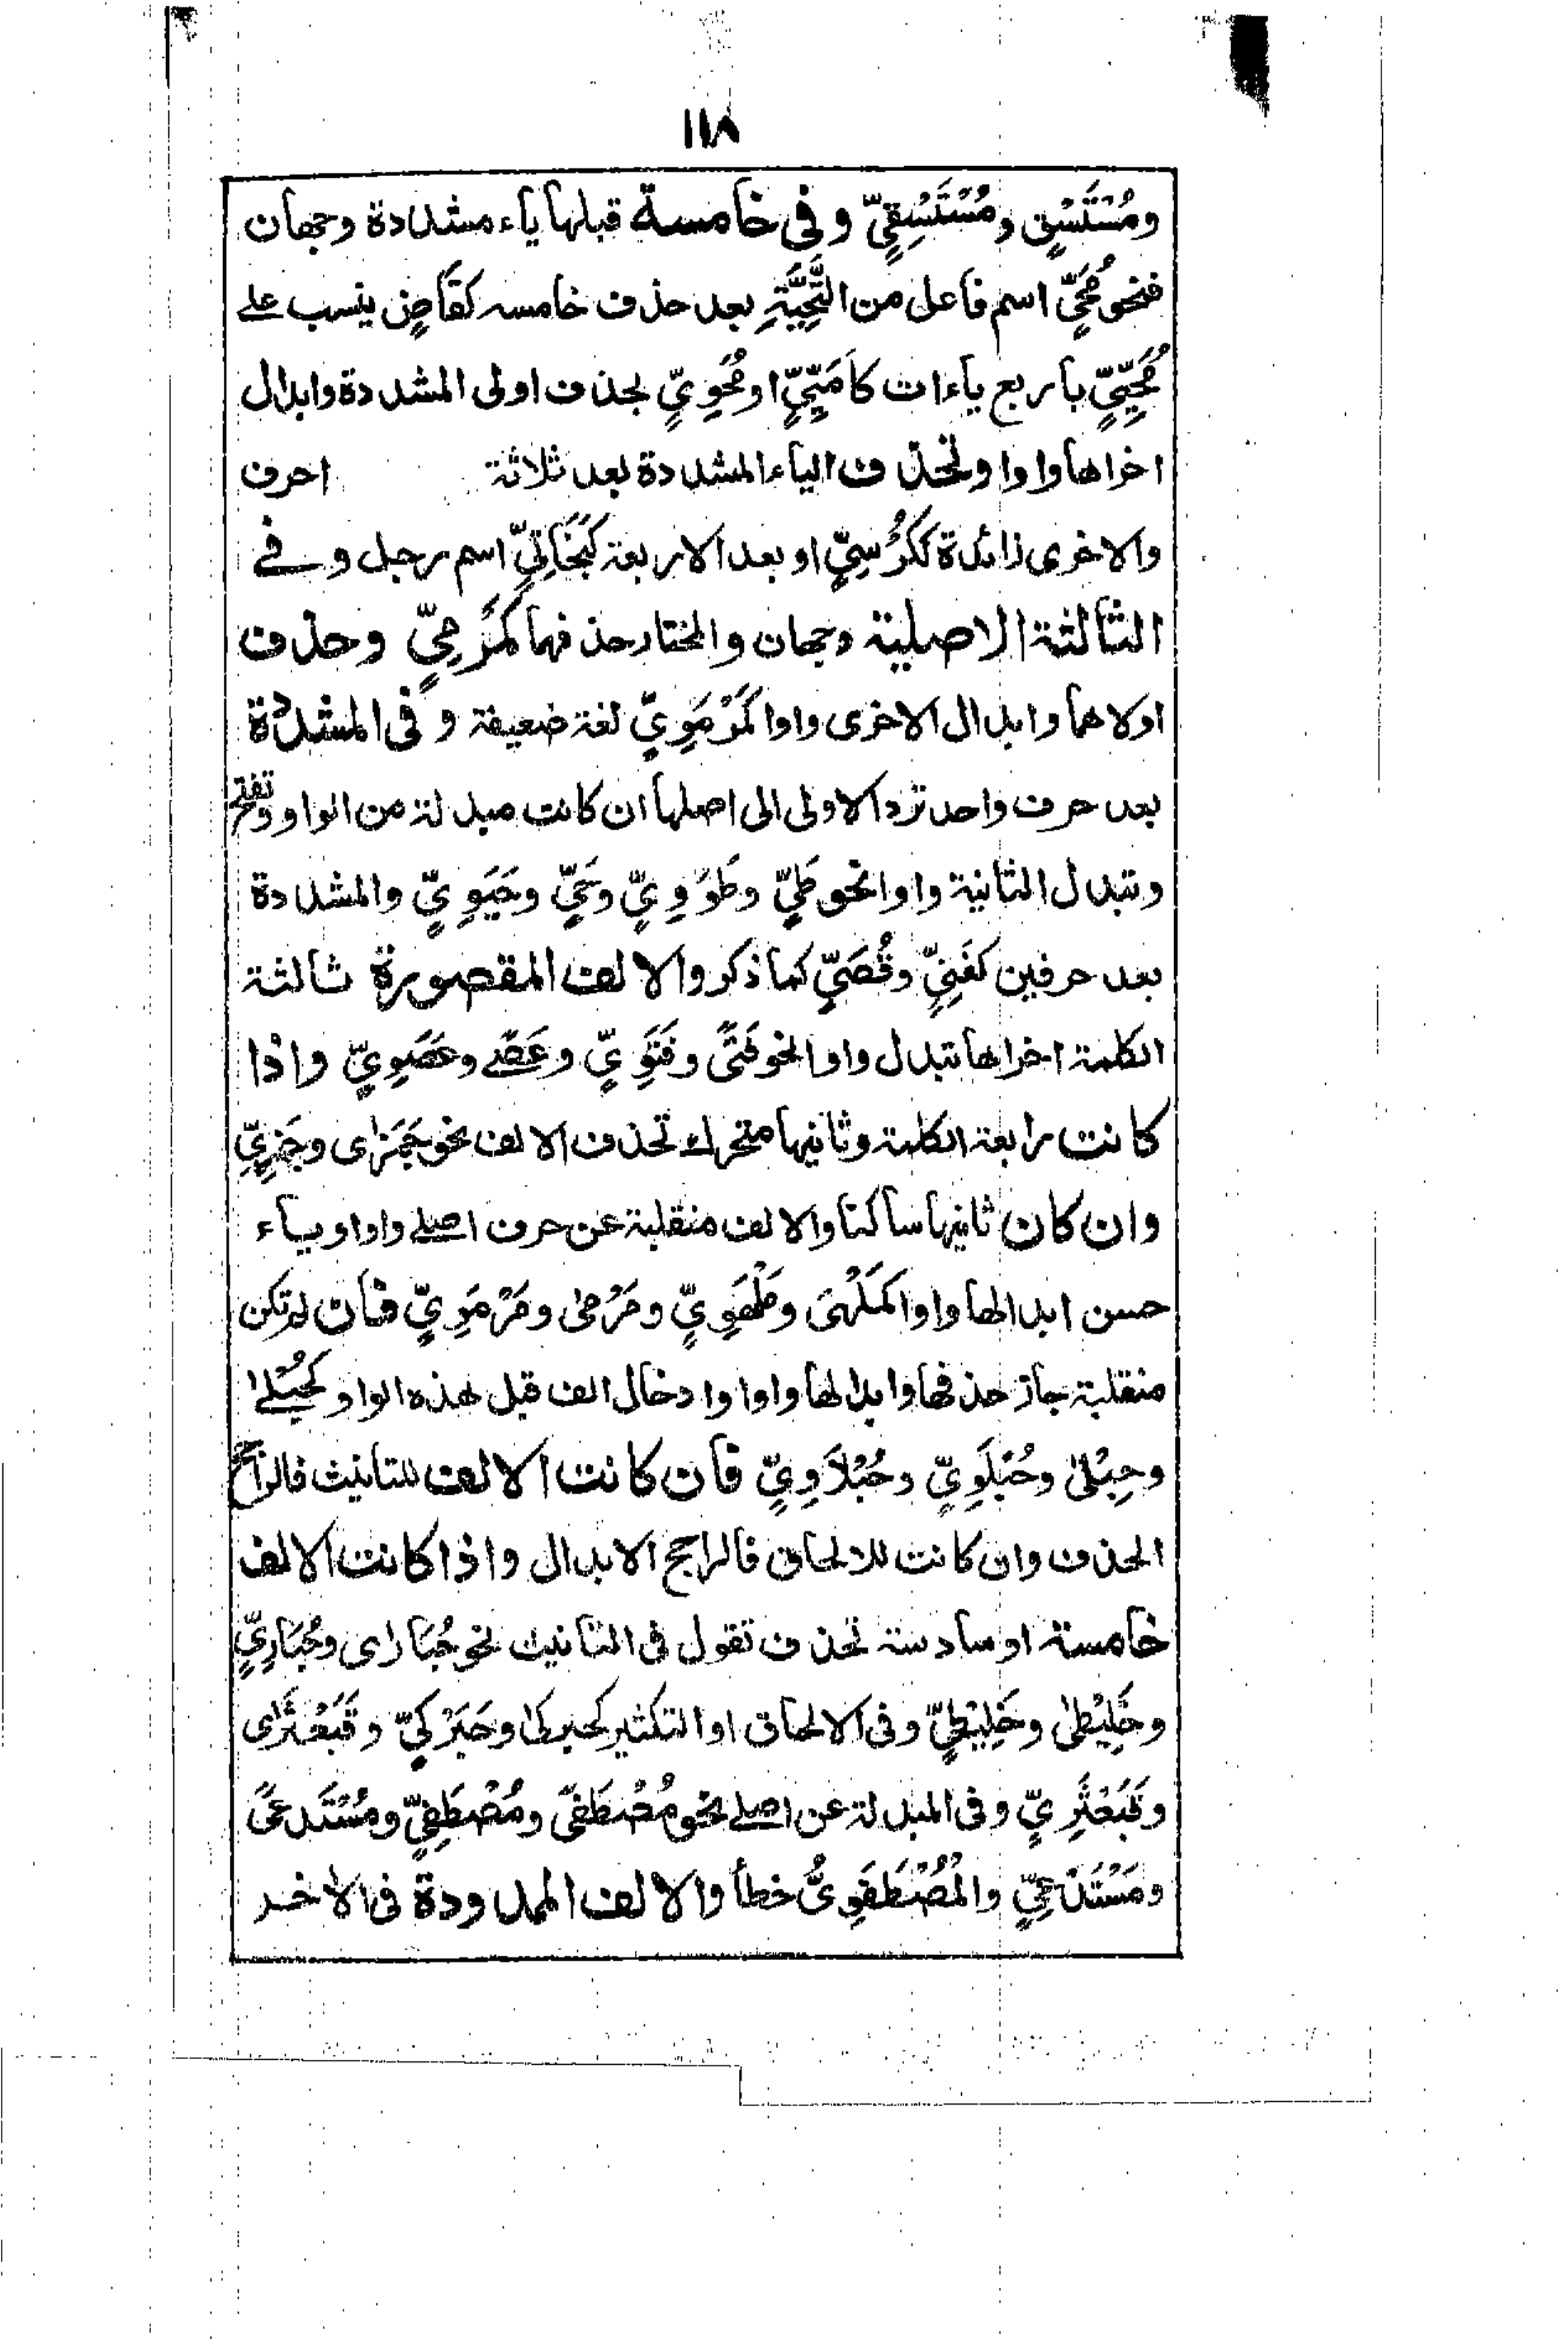 ١١٨
ومُسْتَسْقٍ ومُسْتَسْقِيٍّ وفى خامسة قبلها ياء مشددة وجهان
فنحو مُحَيٍّ اسم فاعل من التَّحِيَّةِ بعد حذف خامسه كقَاضٍ ينسب على
مُحَيِّيٍّ بأربع ياءات كأمَيِّيٍّ او مُحَوِيٍّ بحذف اولى المشددة وابدال
اخراها واوا وتحذف الياء المشددة بعد ثلاثة احرف
والاخرى زائدة ككُرْسِيٍّ او بعد الاربعة كبَخَاتِيٍّ اسم رجل وفى
الثالثة الاصلية وجهان والمختار حذفهما كمَرْمِيٍّ وحذف
اولاهما وابدال الاخرى واوا كمَرْمَوِيٍّ لغة ضعيفة وفى المشددة
بعد حرف واحد ترد الاولى الى اصلها ان كانت مبدلة من الواو وتفتح
وتبدل الثانية واوا نحو طَيٍّ وطَوَوِيٍّ وحَيٍّ وحَيَوِيٍّ والمشددة
بعد حرفين كغَنِيٍّ وقُصَيٍّ كما ذكر والالف المقصورة ثالثة
الكلمة اخراها تبدل واوا نحو فَتًى وفَتَوِيٍّ وعَصًى وعَصَوِيٍّ واذا
كانت رابعة الكلمة وثانيها متحرك تحذف الالف نحو جَمَزَاى وجَمَزِيٍّ
وان كان ثانيها ساكنا والالف منقلبة عن حرف اصلى واوا وياء
حسن ابدالها واوا كمَلْهَى ومَلْهَوِيٍّ ومَرْمىٰ ومَرْمَوِيٍّ فان لم تكن
منقلبة جاز حذفها وابدالها واوا وادخال الف قبل هذه الواو كحُبْلىٰ
وحِبْلىٰ وحُبْلَوِيٍّ وحُبْلَاوِيٍّ فان كانت الالف للتانيث فالراجح
الحذف وان كانت للالحاق فالراجح الابدال واذا كانت الالف
خامسة او سادسة تحذف تقول فى التانيث نحو حُبَاراى وحُبَارِيٍّ
وخُلِّيْطىٰ وخُلِّيْطِيٍّ وفى الالحاق او التكثير كحبركىٰ وحَبَرْكِيٍّ وقَبَعْثَرَاى
وقَبَعْثَرِيٍّ وفى المبدلة عن اصلى نحو مُصْطَفًى ومُصْطَفِيٍّ ومُسْتَدعًى
ومَسْتَدْعِيٍّ والمُصْطَفَوِىُّ خطأ والالف الممدودة فى الاخر